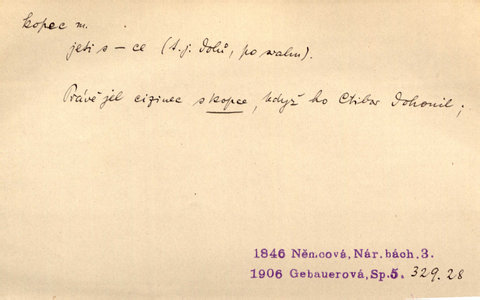 kopec m.
jeti s – ce (t.j. dolů, po svahu).
Právě jel cizinec s kopce, když ho Ctibor dohonil;
1846 Němcová, Nár. bách. 3.
1906 Gebauerová, Sp. 5. 329.28